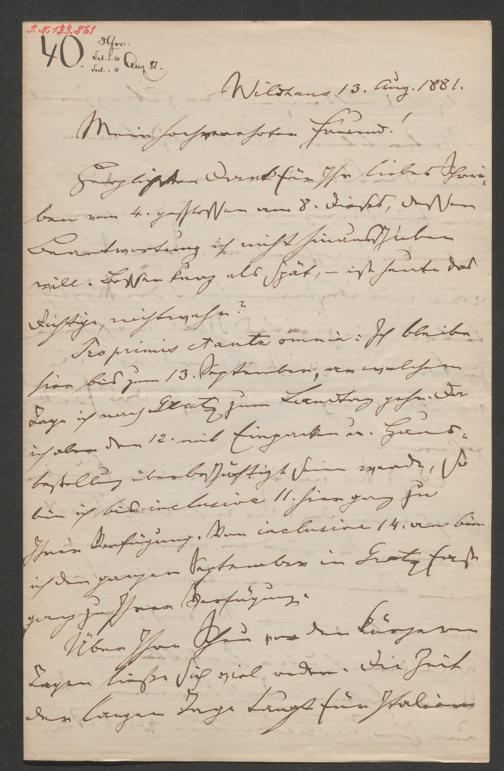 I.N. 133.861
40.
Aug 81.
Wildhaus 13. Aug. 1881.
Mein hochverehrter Freund!
Herzlichsten Dank für Ihr liebes Schrei-
ben vom 4. geschlossen am 8. dieses, dessen
Beantwortung ich nicht hinausschieben
will. Besser kurz als spät, – ist heute das
Richtige, nichtwahr?
Pro primis et ante omnia: Ich bleibe
hier bis zum 13. September, an welchem
Tage ich nach Gratz zum Landtag gehe. Da
ich aber den 12. mit Einpacken u. Haus-
bestellung überbeschäftigt sein werde, so
bin ich bis inclusive 11. hier ganz zu
Ihrer Verfügung. Von inclusive 14. an bin
ich den ganzen September in Gratz fast
ganz zu Ihrer Verfügung.
Über Ihre Scheu vor den kürzeren
Tagen ließe sich viel reden. Die Zeit
der langen Tage taugt für Italien